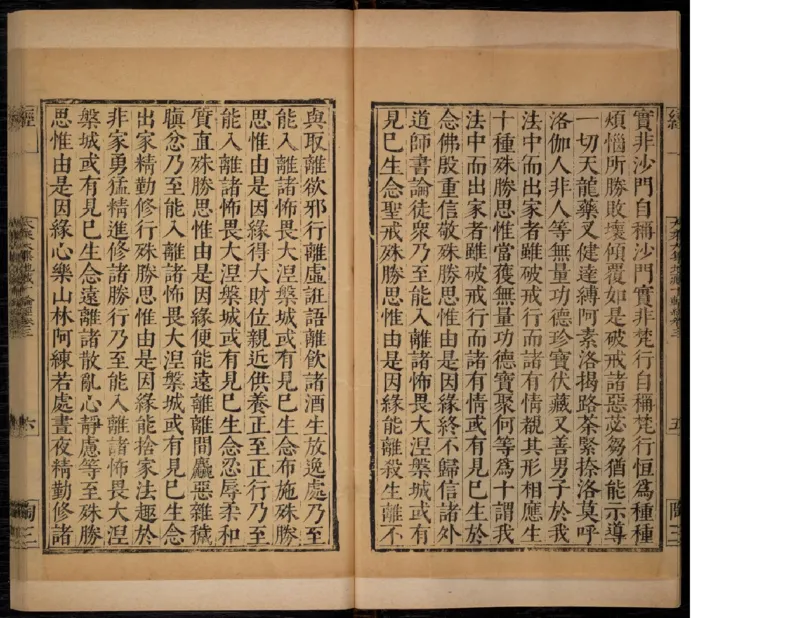 實非沙門自稱沙門實非梵行自稱梵行恒爲種種
煩惱所勝敗壞傾覆如是破戒諸惡苾芻猶能示導
一切天龍藥叉健達縛阿素洛揭路荼緊捺洛莫呼
洛伽人非人等無量功德珍寶伏藏又善男子於我
法中而出家者雖破戒行而諸有情覩其形相應生
十種殊勝思惟當獲無量功德寶聚何等爲十謂我
法中而出家者雖破戒行而諸有情或有見巳生於
念佛殷重信敬殊勝思惟由是因緣終不歸信諸外
道師書論徒衆乃至能入離諸怖畏大涅槃城或有
見巳生念聖戒殊勝思惟由是因緣能離殺生離不
五
陶三
與取離欲邪行離虛誑語離飲諸酒生放逸處乃至
能入離諸怖畏大涅槃城或有見巳生念布施殊勝
思惟由是因緣得大財位親近供養正至正行乃至
能入離諸怖畏大涅槃城或有見巳生念忍辱柔和
質直殊勝思惟由是因緣便能遠離離間麤惡雜穢
瞋忿乃至能入離諸怖畏大涅槃城或有見巳生念
出家精勤修行殊勝思惟由是因緣能捨家法趣於
非家勇猛精進修諸勝行乃至能入離諸怖畏大涅
槃城或有見巳生念遠離諸散亂心靜慮等至殊勝
思惟由是因緣心樂山林阿練若處晝夜精勤修諸
經
六
陶三